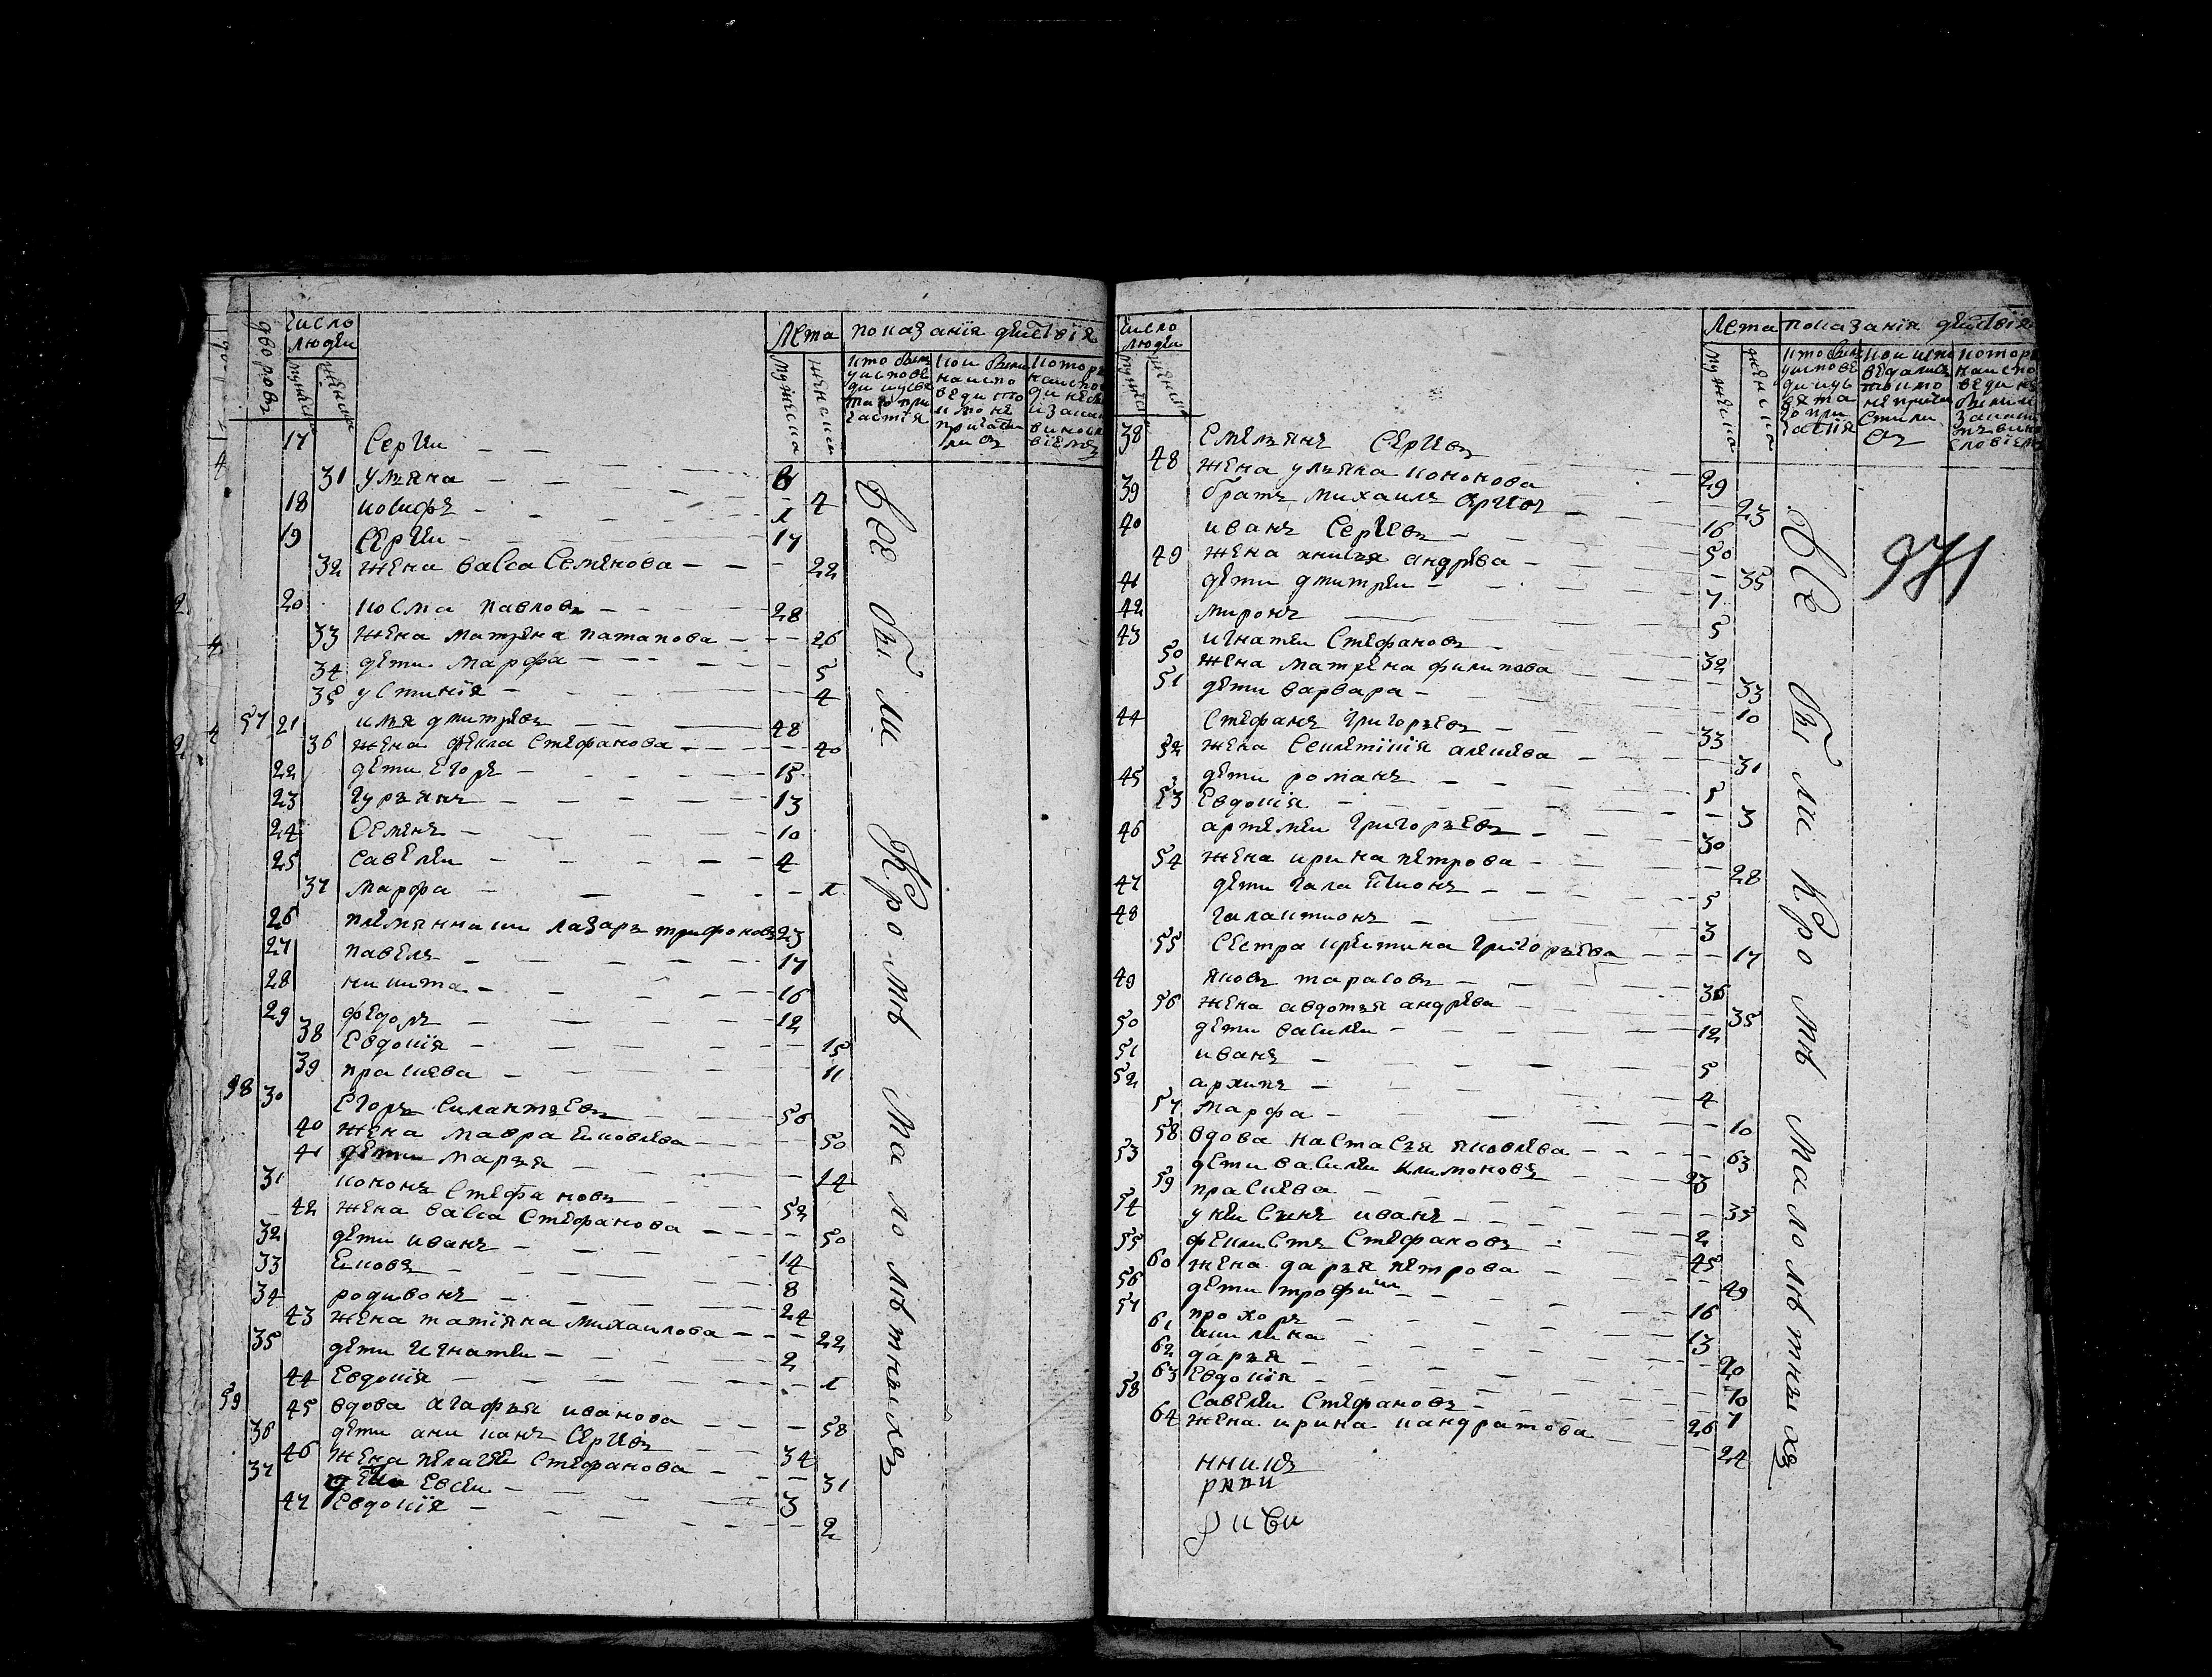 дворовъ
число людеи
мужеска
женска
Лета
показанїя действїя
мужеска
женска
17 Сергеи 6
31 ульяна 4
18 иосифъ 1
19 Сергеи 17
32 жена васса Семенова 22
20 косма павловъ 28
33 жена матрена патапова 26
34 дети марфа 5
35 устинїя 4
57 21 илья дмитревъ 48
36 жена фекла Стефанова 40
22 дети Егоръ 15
23 гурьянъ 13
24 Семенъ 10
25 савелеи 4
37 марфа 1
26 племянники лазаръ трифоновъ 23
27 павелъ 17
28 никита 16
29 федоръ 12
38 Евдокїя 15
39 прасковя 11
58 30 Егоръ Силантьевъ 56
40 жена мавра Ековлева 50
41 дети марья 14
31 кононъ Стефановъ 52
42 жена васса Стефанова 50
32 дети иванъ 14
33 Ековъ 8
34 родивонъ 24
43 жена татїяна михаилова 22
35 дети игнатеи 2
44 Евдокїя 1
59 45 вдова агафья иванова 58
36 дети аниканъ Сергеевъ 34
46 жена пелагея Стефанова 31
37 дети Евсеи 3
47 Евдокїя 2
Все были Кроме малолетныхъ
число людеи
мужеска
женска
Лета
показанїя действїя
мужеска
женска
38 Емельянъ Сергеевъ 29
48 жена ульяна кононова 23
39 братъ михаилъ Сергеевъ 16
40 иванъ Сергеевъ 50
49 жена анисья андрева 35
41 дети дмитреи 7
42 миронъ 5
43 игнатеи Стефановъ 32
50 жена матрена филипова 33
51 дети варвара 10
44 Стефанъ григорьевъ 33
52 жена Секлетикїя алексева 31
45 дети романъ 5
53 Евдокїя 3
46 артемеи григорьевъ 30
54 жена ирина петрова 28
47 дети галактионъ 5
48 галактионъ 3
55 Сестра крестина григорьева 17
49 яковъ тарасовъ 36
56 жена авдотья андрева 35
50 дети василеи 12
51 иванъ 5
52 архипъ 4
57 марфа 10
58 вдова настасья яковлева 63
53 дети василеи климоновъ 23
59 прасковя 35
54 у неи Сынъ иванъ 2
55 феклистъ Стефановъ 45
60 жена дарья петрова 49
56 дети трофим 16
57 прохоръ 13
61 акилина 20
62 дарья 10
63 Евдокїя 7
58 Савелеи Стефановъ 26
64 жена ирина кандратова 24
Все были Кроме малолетныхъ
971